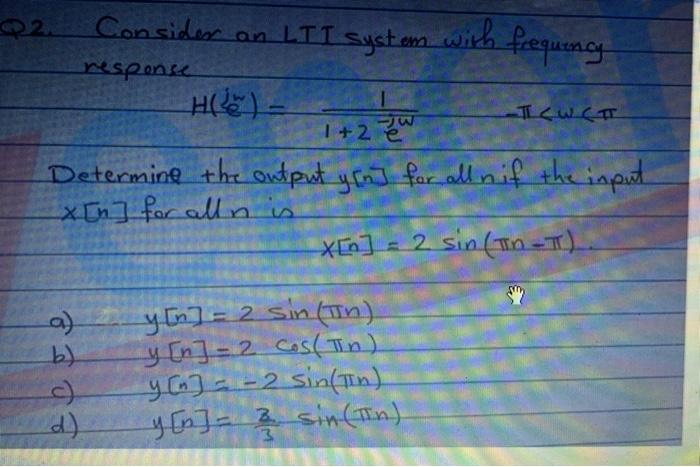 Q2. Consider an LTI system with frequency
response
H(e^{jw}) = \frac{1}{1+2e^{-jw}} -π<w<π
Determine the output y[n] for all n if the input
x[n] for all n is
x[n] = 2 sin(πn-π).
a) y[n] = 2 sin(πn)
b) y[n] = 2 cos(πn)
c) y[n] = -2 sin(πn)
d) y[n] = \frac{2}{3} sin(πn)